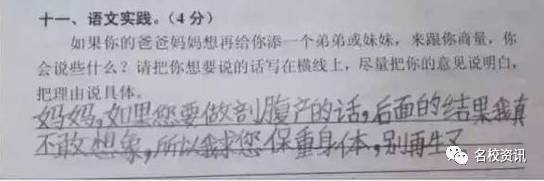 十一、语文实践。(4分)
如果你的爸爸妈妈想再给你添一个弟弟或妹妹,来跟你商量,你
会说些什么?请把你想要说的话写在横线上,尽量把你的意见说明白,
把理由说具体。
妈妈,如果您要做剖腹产的话,后面的结果我真
不敢想象,所以我求您保重身体,别再生了
名校资讯